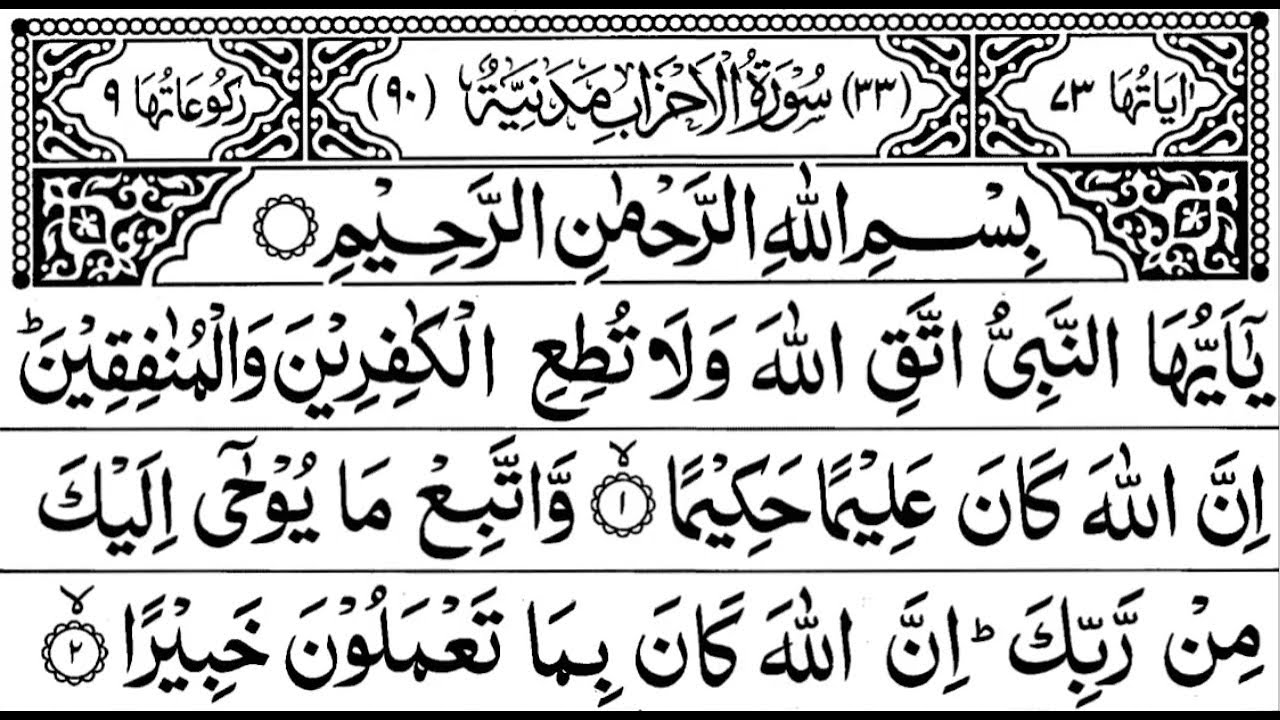 اٰيَاتُهَا ٧٣ (٣٣) سُوْرَةُ الْاَحْزَابِ مَدَنِيَّةٌ (٩٠) رُكُوْعَاتُهَا ٩
بِسْمِ اللّٰهِ الرَّحْمٰنِ الرَّحِيْمِ
يٰۤاَيُّهَا النَّبِيُّ اتَّقِ اللّٰهَ وَلَا تُطِعِ الْكٰفِرِيْنَ وَالْمُنٰفِقِيْنَ ؕ
اِنَّ اللّٰهَ كَانَ عَلِيْمًا حَكِيْمًا ۙ ١ وَّاتَّبِعْ مَا يُوْحٰۤى اِلَيْكَ
مِنْ رَّبِّكَ ؕ اِنَّ اللّٰهَ كَانَ بِمَا تَعْمَلُوْنَ خَبِيْرًا ۙ ٢